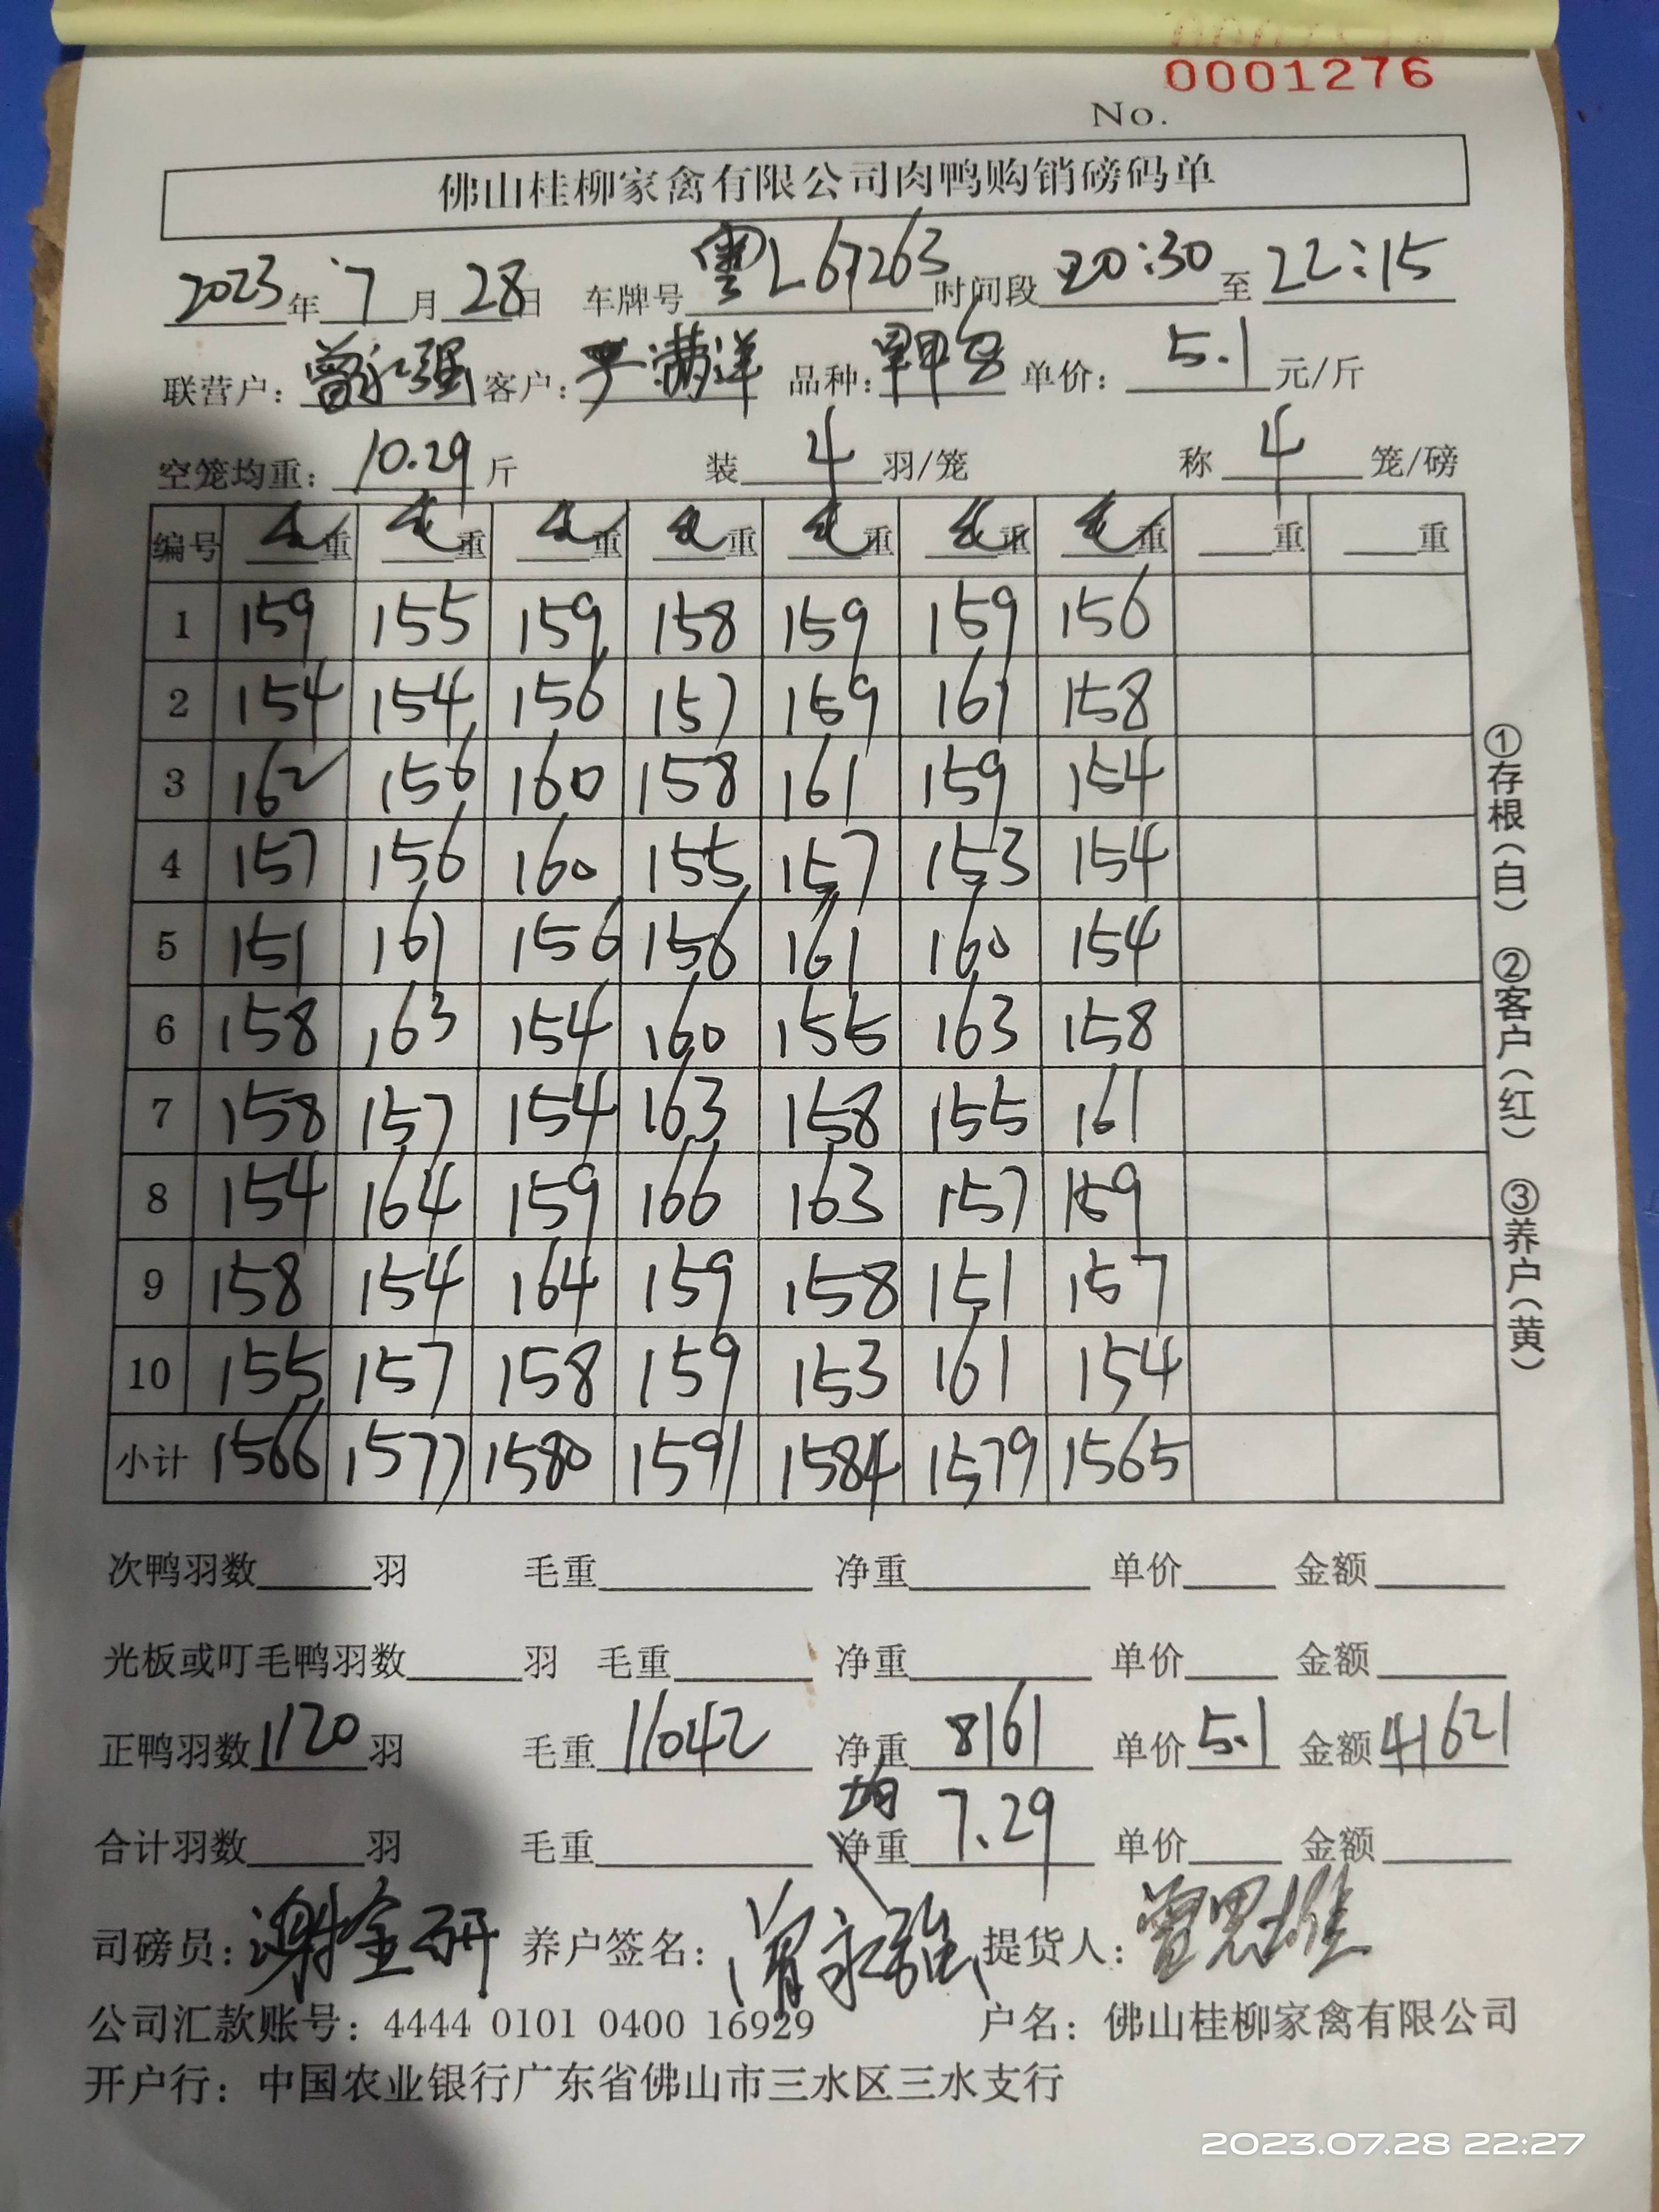 0001276
No.
佛山桂柳家禽有限公司肉鸭购销磅码单
2023年 7 月 28日 车牌号 粤L67263 时间段 20:30 至 22:15
联营户: 曾永强 客户: 满洋 品种: 单价: 5.1 元/斤
空笼均重: 10.29 斤 装 4 羽/笼 称 4 笼/磅
编号 毛重 毛重 毛重 毛重 毛重 毛重 毛重 重 重
1 159 155 159 158 159 159 156
2 154 154 156 157 159 161 158
3 162 156 160 158 161 159 154
4 157 156 160 155 157 153 154
5 151 161 156 156 161 160 154
6 158 163 154 160 155 163 158
7 158 157 154 163 158 155 161
8 154 164 159 166 163 157 159
9 158 154 164 159 158 151 157
10 155 157 158 159 153 161 154
小计 1566 1577 1580 1591 1584 1579 1565
①存根(白) ②客户(红) ③养户(黄)
次鸭羽数 羽 毛重 净重 单价 金额
光板或叮毛鸭羽数 羽 毛重 净重 单价 金额
正鸭羽数1120羽 毛重 11042 净重 8161 单价 5.1 金额 41621
合计羽数 羽 毛重 均 净重 7.29 单价 金额
司磅员: 谢金研 养户签名: 曾永强 提货人: 曾思雄
公司汇款账号: 4444 0101 0400 16929 户名: 佛山桂柳家禽有限公司
开户行: 中国农业银行广东省佛山市三水区三水支行
2023.07.28 22:27